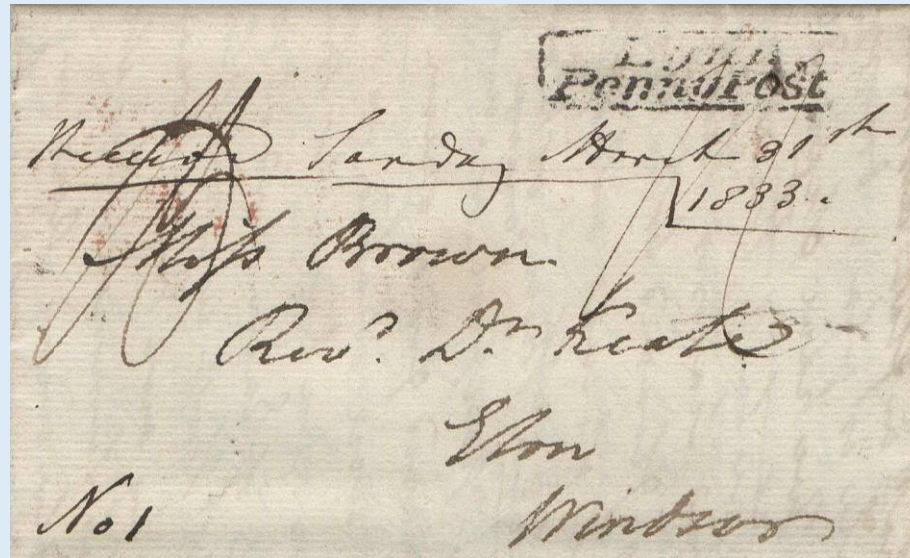 Lynn
Penny Post
Received Sunday March 31st
1833.
Miss Brown
Revd. Dr Keate
Eton
Windsor
No 1